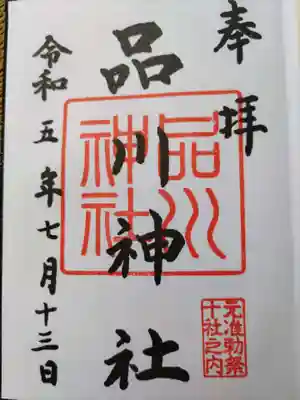 奉拝
品川神社
品川神社
元准勅祭
十社之内
令和五年七月十三日